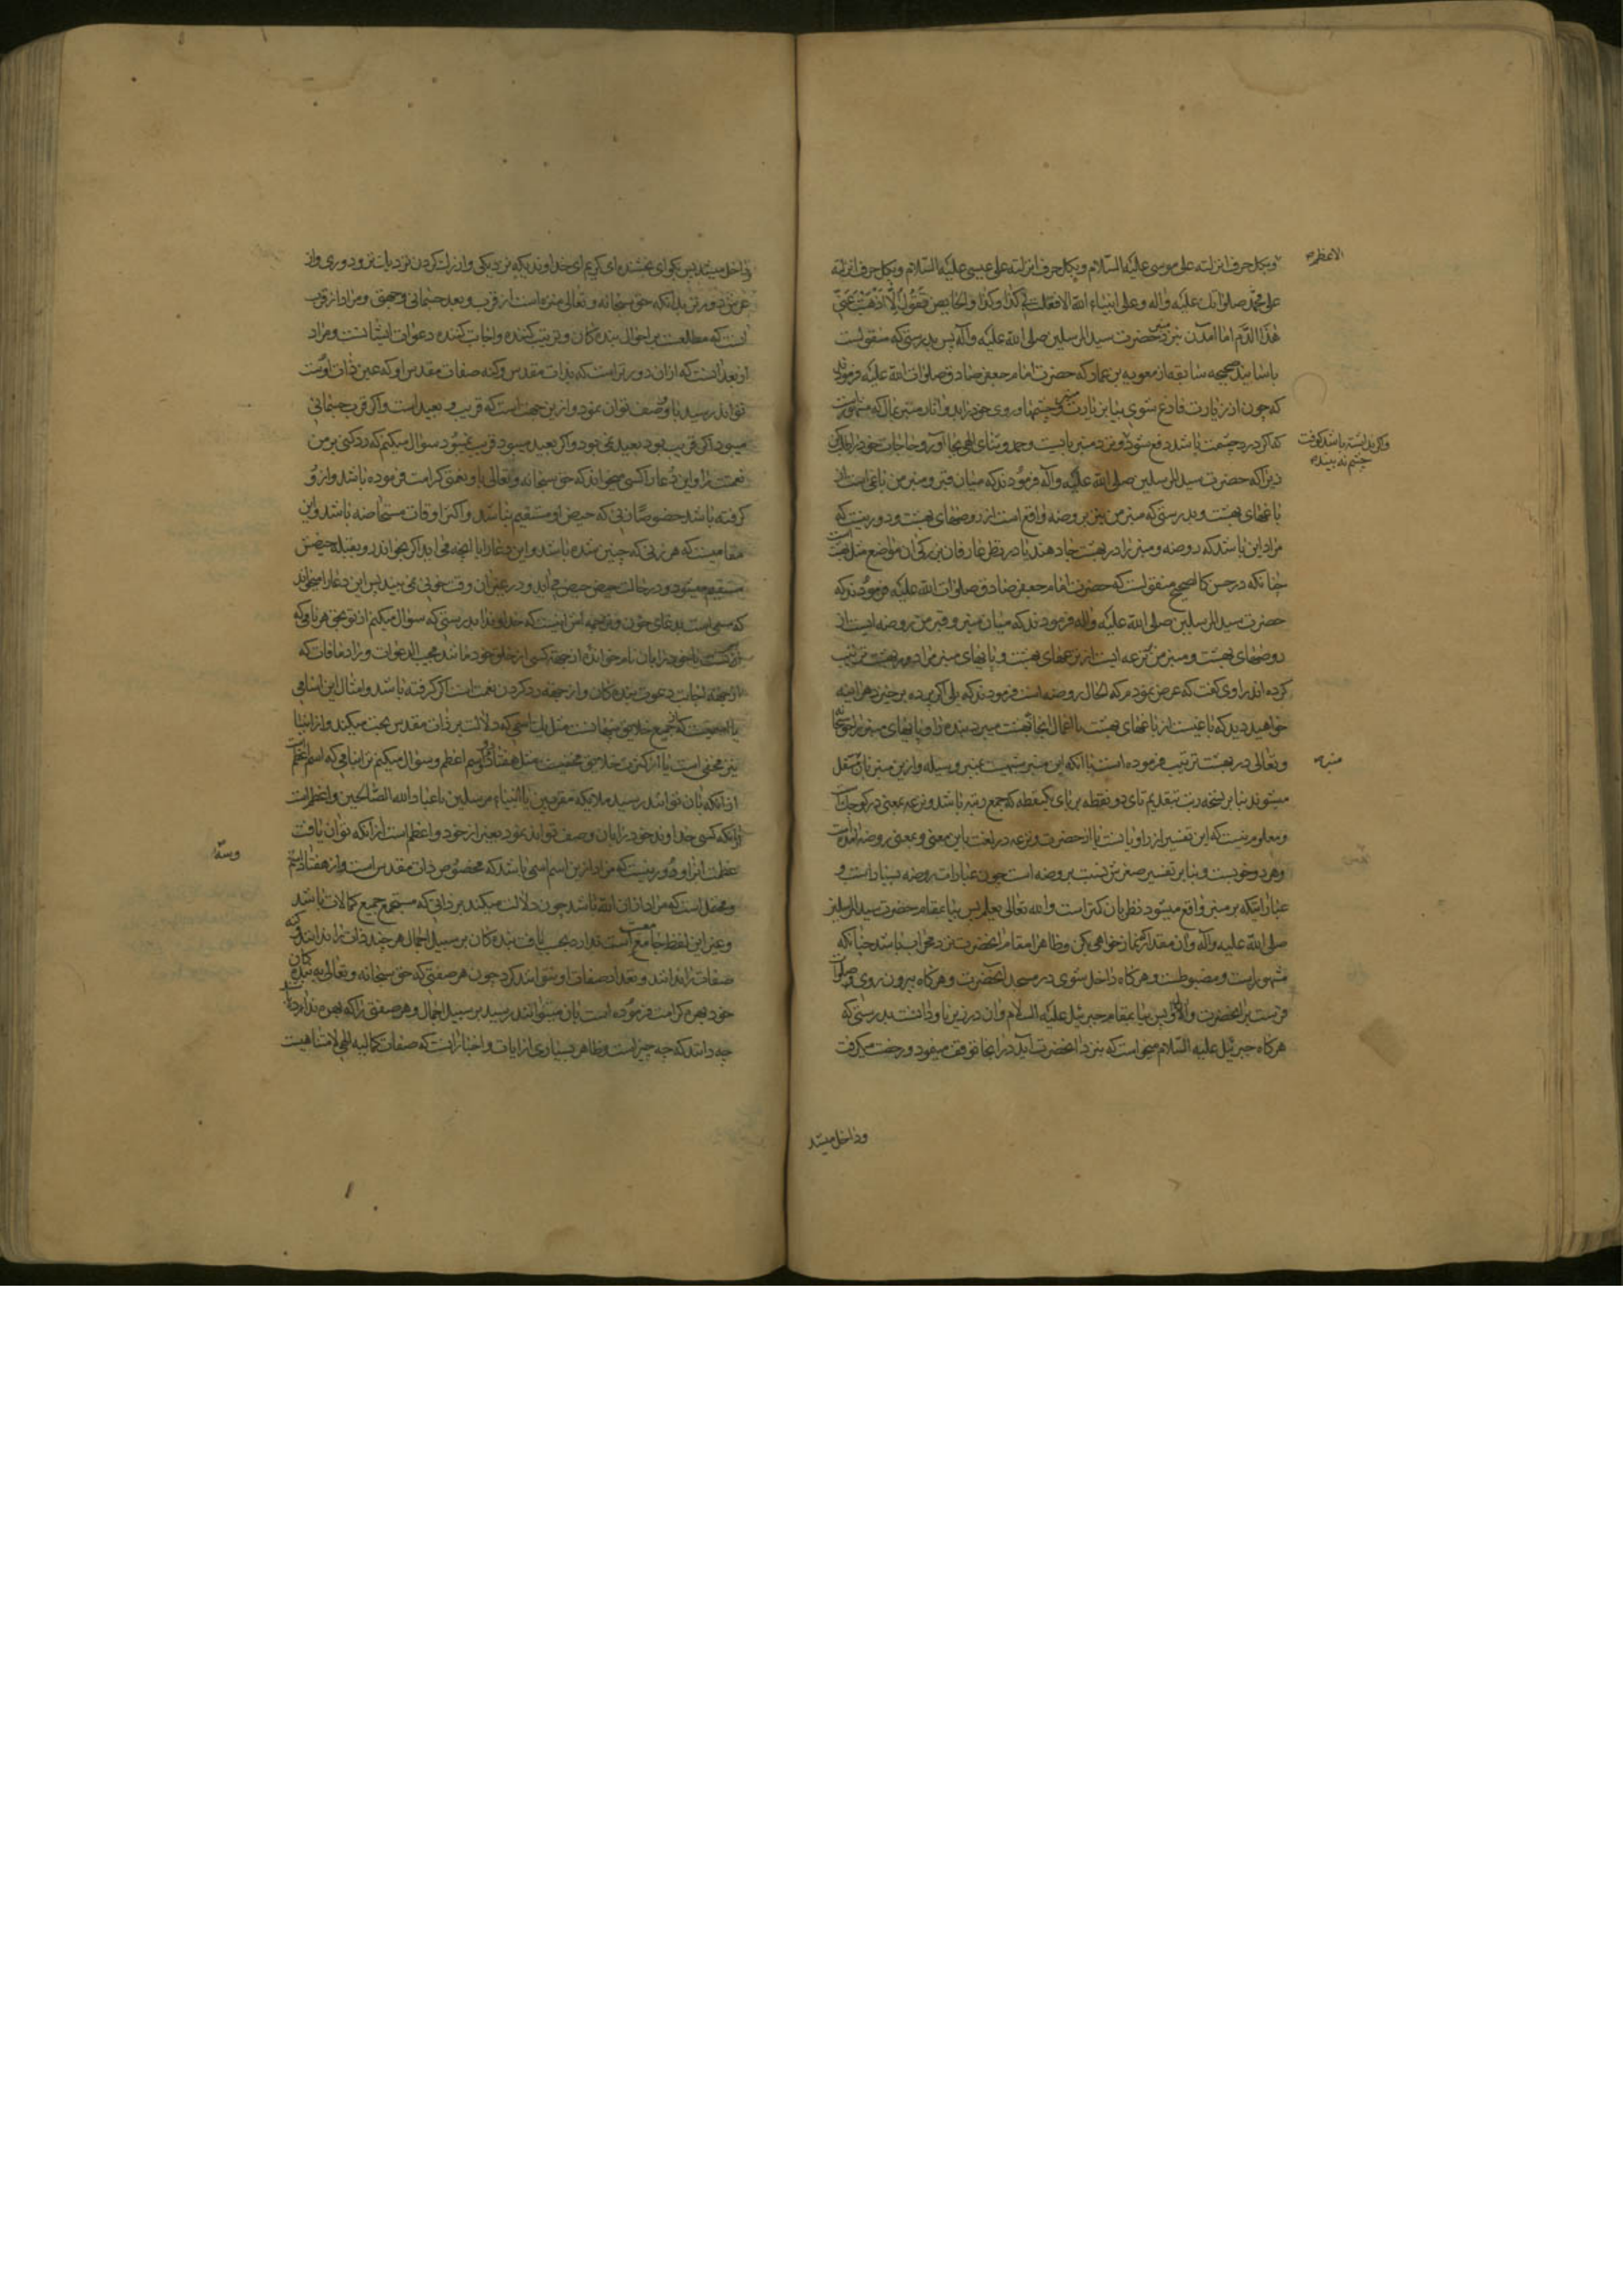 وبکل حرف انزلته علی موسی علیه السلام وبکل حرف انزلته علی عیسی علیه السلام وبکل حرف انزلته
الاعظم
علی محمد صلواتک علیه واله وعلی انبیاء الله الا فعلت بی کذا وکذا والحایض تقول الا اذهبت عنی
هذا الدم اما آمدن نزد منبر حضرت سید المرسلین صلی الله علیه وآله پس بدرستی که منقولست
باسانید صحیحه سابقه از معویه بن عمار که حضرت امام جعفر صادق صلوات الله علیه فرمودند
که چون از زیارت فارغ شوی بیا بنزد منبر و چشمها و روی خود را بدو انار منبر بمال که مشهورست
که اگر درد چشمت باشد دفع شود و نزد منبر بایست و حمد و ثنای الهی بجا آور و حاجات خود را طلب کن
زیرا که حضرت سید المرسلین صلی الله علیه وآله فرمودند که میان قبر و منبر من باغی است از
باغهای بهشت و بدرستی که منبر من نیز بر روضه واقع است از روضهای بهشت و دور نیست که
مراد این باشد که روضه و منبر را در بهشت جا دهند یا در نظر عارفان بزرگی ان مواضع مثل بهشت است
چنانکه در حسن کالصحیح منقولست که حضرت امام جعفر صادق صلوات الله علیه فرمودند که
حضرت سید المرسلین صلی الله علیه واله فرمودند که میان منبر و قبر من روضه ایست از
روضهای بهشت و منبر من بر ترعه ایست از ترعهای بهشت و پایهای منبر مرا در بهشت ترتیب
کرده اند راوی گفت که عرض نمودم که الحال روضه است فرمودند که بلی اگر پرده برخیزد هر اینه
خواهید دید که باغیست از باغهای بهشت یا اعمال اینجا بهشت میبرد بنده را و پایهای منبر را حق سبحانه
وتعالی در بهشت ترتیب فرموده است یا انکه این منبر منتهی است بمنبر وسیله و ازین منبر بان منتقل
میشوند بنا بر نسخه رتب بتقدیم تای دو نقطه بر بای یکنقطه که جمع رتبه باشد و ترعه بمعنی در کوچک است
ومعلوم نیست که این تفسیر از راویانست یا از حضرت و ترعه در لغت باین معنی و بمعنی روضه آمده است
وهر دو خوبست و بنا بر تفسیر صغیرش نسبت بروضه است چون عبادات روضه بسیار است و
عباداتیکه بر منبر واقع میشود نظر بان کمتر است والله تعالی یعلم پس بیا بمقام حضرت سید المرسلین
صلی الله علیه وآله وآن مقدار نماز خواهی بکن و ظاهرا مقام انحضرت نزد محراب باشد چنانکه
مشهور است و مضبوطست و هرگاه داخل شوی در مسجد انحضرت و هرگاه بیرون روی صلوات
فرست بر انحضرت و آل او پس بیا بمقام جبرئیل علیه السلام وان در زیر ناودانست بدرستی که
هرگاه جبرئیل علیه السلام میخواست که بنزد انحضرت آید در انجا توقف مینمود و رخصت میگرفت
وداخل میشد
واگر بدل بسته باشد کوفت چشم نه بیند
منبر
وداخل میشد پس بگو ای بخشنده ای کریم ای خداوندیکه نزدیکی و از نزدیک کردن نزدیک تر و دوری و از
عرش دورتر بدانکه حق سبحانه و تعالی منزه است از قرب و بعد جسمانی و جهتی و مراد از قرب
آنست که مطلعست بر احوال بندگان و تربیت کننده و اجابت کننده دعوات ایشانست و مراد
از بعد آنست که ازان دورتر است که بذات مقدس و کنه صفات مقدس او که عین ذات اوست
توانند رسید یا وصف توان نمود و ازین جهت است که قریب و بعید است و اگر قرب جسمانی
میبود اگر قریب بود بعید نمی بود و اگر بعید میبود قریب نمیبود سؤال میکنم که رد کنی بر من
نعمت را و این دعا را کسی میخواند که حق سبحانه و تعالی باو نعمتی کرامت فرموده باشد و ازو
گرفته باشد خصوصا زنی که حیض او مستقیم نباشد و اکثر اوقات مستحاضه باشد و این
مقامیست که هر زنی که چنین شده باشد و این دعا را با انچه می اید اگر بخواند رو بقبله حیضش
مستقیم میشود و در حالت حیض حیض می آید و در غیر ان وقت خونی نمی بیند پس این دعا را میخواند
که مسمی است بدعای خون و ترجمه اش اینست که خداوندا بدرستی که سؤال میکنم از تو بحق هر نامی که
از تست یا خود را بان نام خوانده از جهة کسی از خلق خود مانند مجیب الدعوات و رادّ مافات که
از جهة اجابت دعوت بندگان و از جهة رد کردن نعمت است اگر گرفته باشد و امثال این اسامی
یا اسمیست که از جمیع خلایق پنهانست مثل یک اسمی که دلالت بر ذات مقدس بحت میکند و از انبیا
نیز مخفی است یا از اکثر خلایق مخفیست مثل هفتاد و دو اسم اعظم و سؤال میکنم ترا بنامی که اسم اعظم است
ازانکه بان توانند رسید ملائکه مقربین یا انبیاء مرسلین یا عباد الله الصالحین و اعظم است
ازانکه کسی خداوند خود را بان وصف تواند نمود بغیر از خود و اعظم است ازانکه توان یافت
عظمت انرا و دور نیست که مراد ازین اسم اسمی باشد که مخصوص ذات مقدس است و از هفتاد و سه اسم
ومحتمل است که مراد ازان الله باشد چون دلالت میکند بر ذاتی که مستجمع جمیع کمالات باشد
و غیر این لفظ جامعیت ندارد بحسب یافت بندگان بر سبیل اجمال هر چند ذات را ندانند و کنه
صفات را ندانند و تعداد صفات او نتوانند کرد چون هر صفتی که حق سبحانه و تعالی به بندگان
خود بهره کرامت فرموده است بان میتوانند رسید بر سبیل اجمال و هر صفتی را که بهره ندارند
چه دانند که چه چیز است و ظاهر بسیاری از ایات و اخبار آنست که صفات کمالیه الهی لامتناهیست